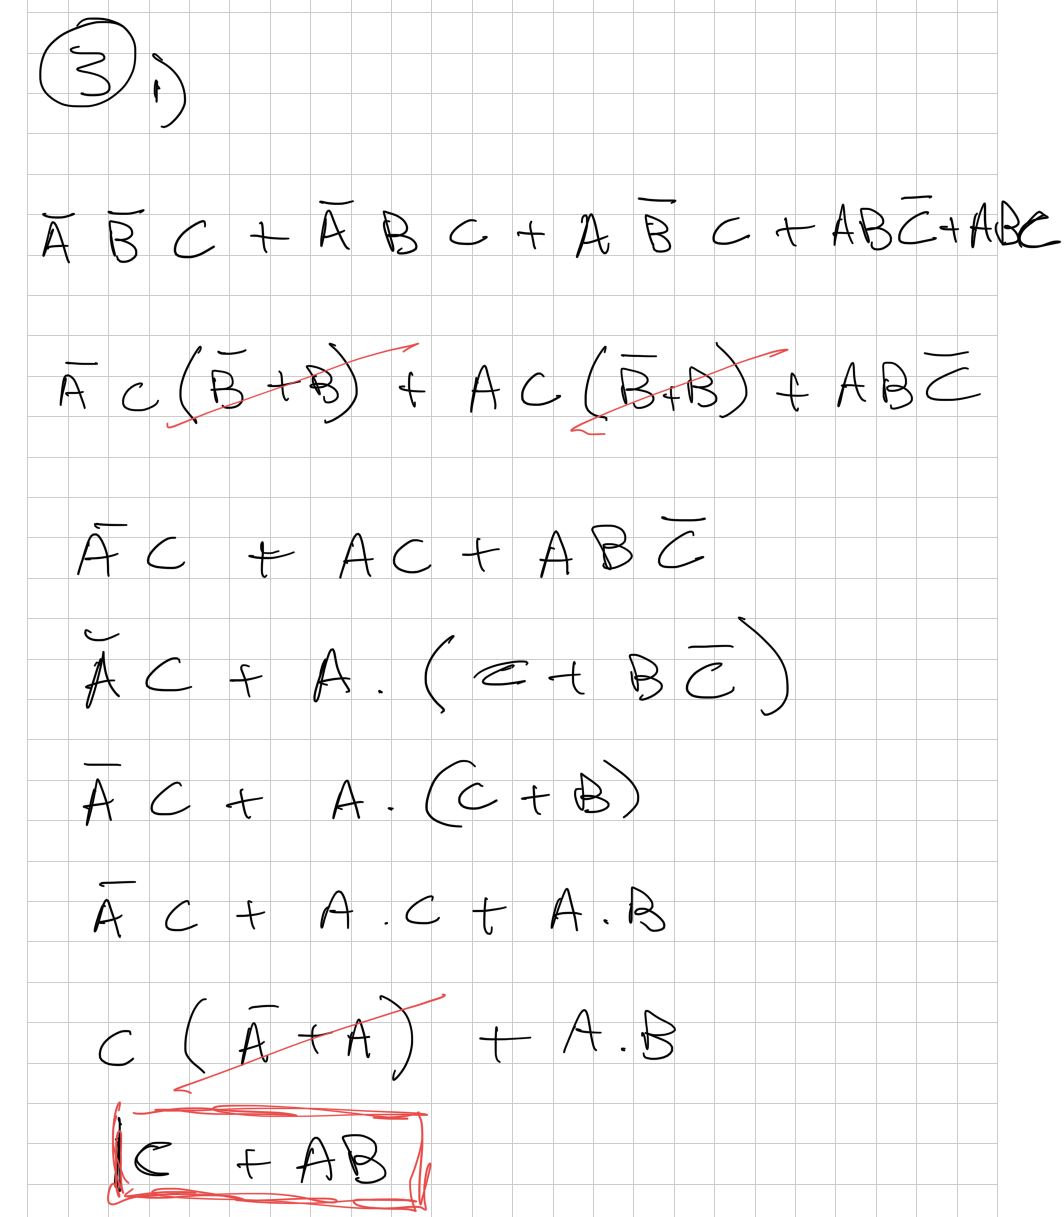 3 1)
A̅ B̅ C + A̅ B C + A B̅ C + ABC̅ + ABC
A̅ C (B̅ + B) + A C (B̅ + B) + A B C̅
A̅ C + A C + A B C̅
A̅ C + A . (C + B C̅)
A̅ C + A . (C + B)
A̅ C + A . C + A . B
C (A̅ + A) + A . B
C + AB